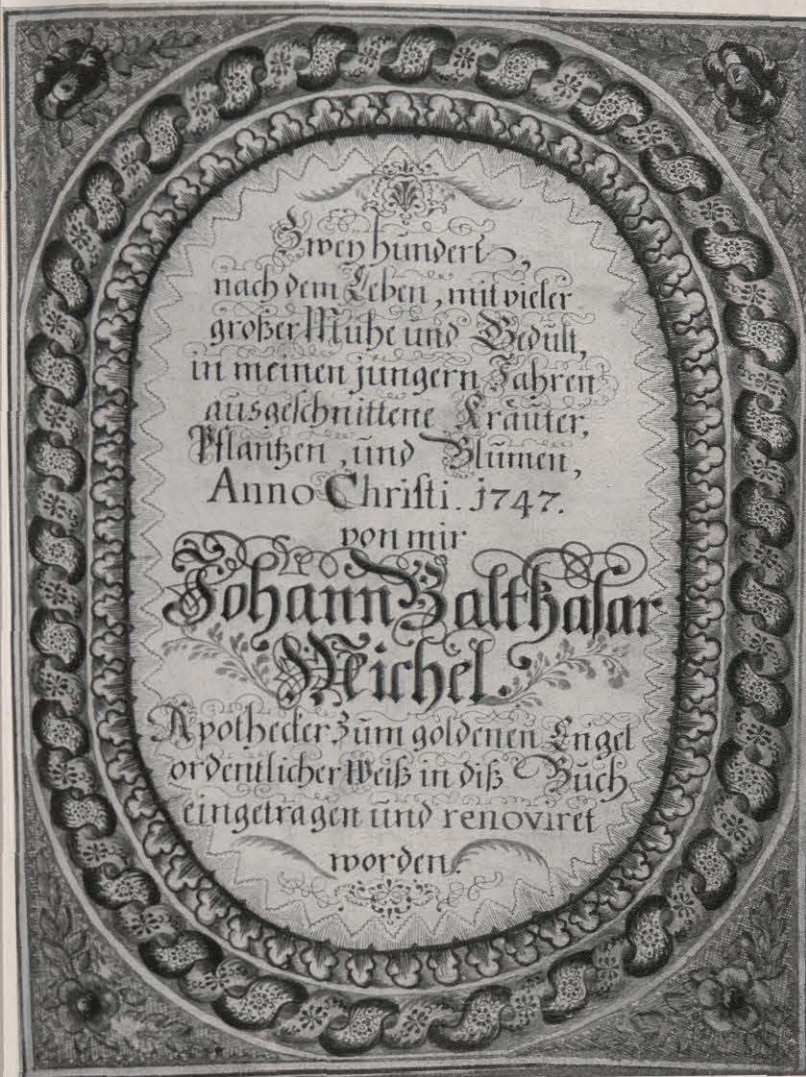 Zwey hundert,
nach dem Leben, mit vieler
großer Mühe und Gedült,
in meinen jüngern Jahren
ausgeschnittene Kräuter,
Pflantzen, und Blumen,
Anno Christi. 1747.
von mir
Johann Balthasar
Michel.
Apothecker zum goldenen Engel
ordentlicher Weiß in diß Buch
eingetragen und renoviret
worden.